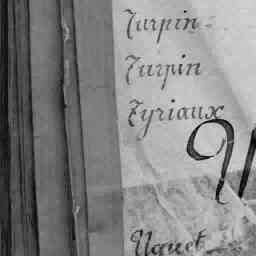 Turpin
Turpin
Tyriaux
U
Uguet